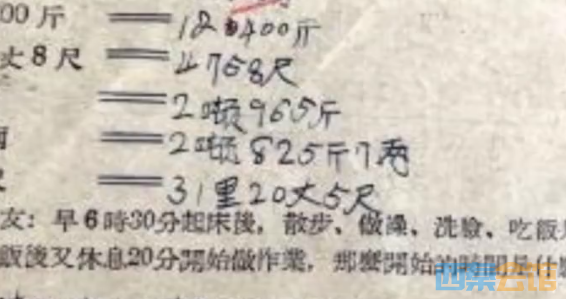 00斤 = 12400斤
丈8尺 = 4758尺
= 2吨965斤
= 2吨825斤7两
= 31里20丈5尺
友：早6時30分起床後，散步、做操、洗臉、吃飯
飯後又休息20分開始做作業，那麼開始的時間是什
四票会馆